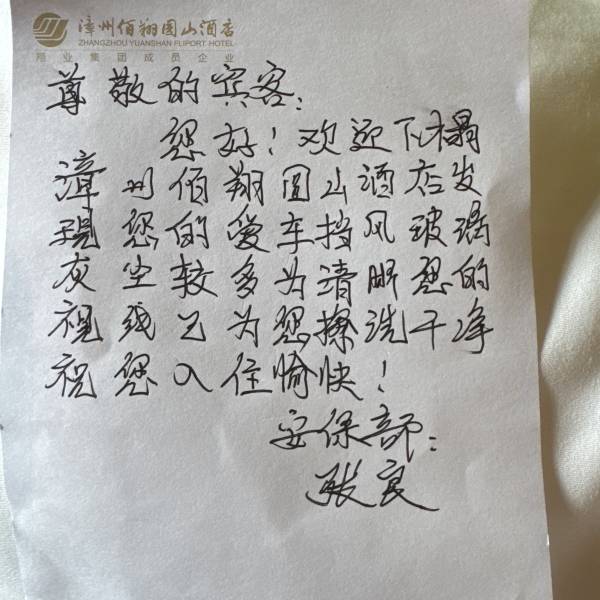 漳州佰翔圆山酒店
ZHANGZHOU YUANSHAN FLIPORT HOTEL
翔业集团成员企业
尊敬的宾客:
您好!欢迎下榻
漳州佰翔圆山酒店发
现您的爱车挡风玻璃
灰尘较多为清晰您的
视线已为您擦洗干净
祝您入住愉快!
安保部:
张良